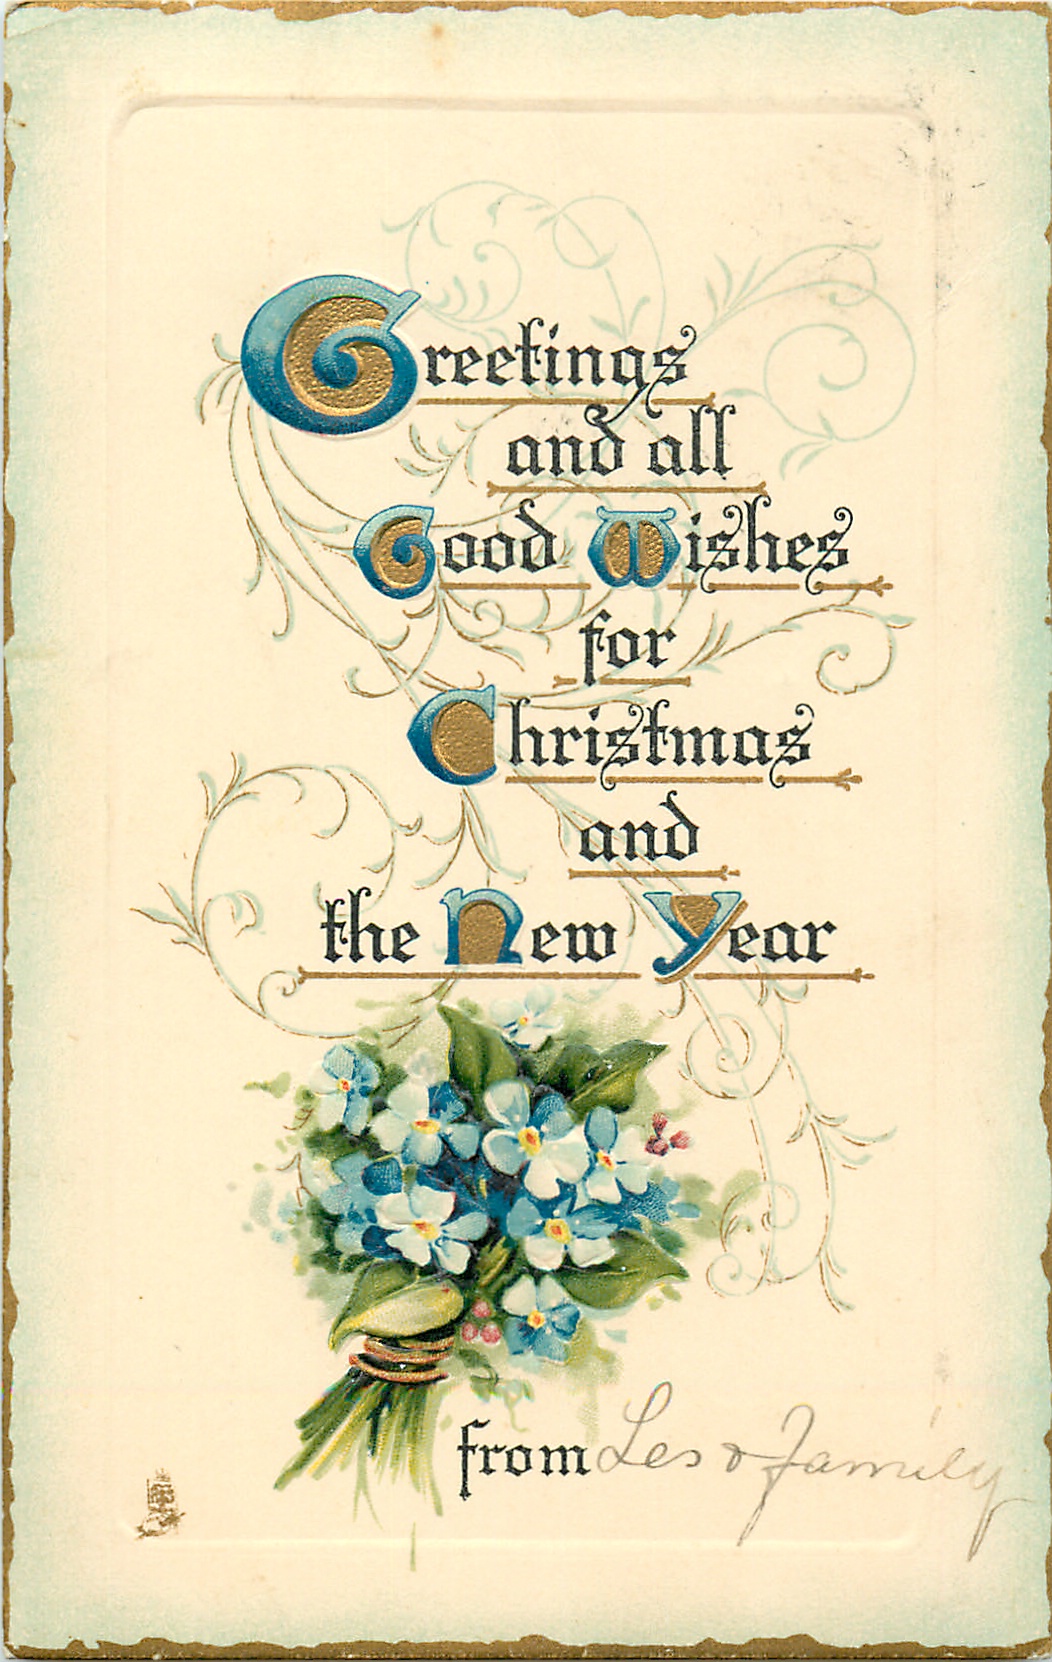 Greetings
and all
Good Wishes
for
Christmas
and
the New Year
from Les & Family